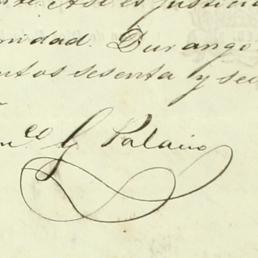 Así es justicia
nidad. Durango
ntos sesenta y sei
co G Palacio